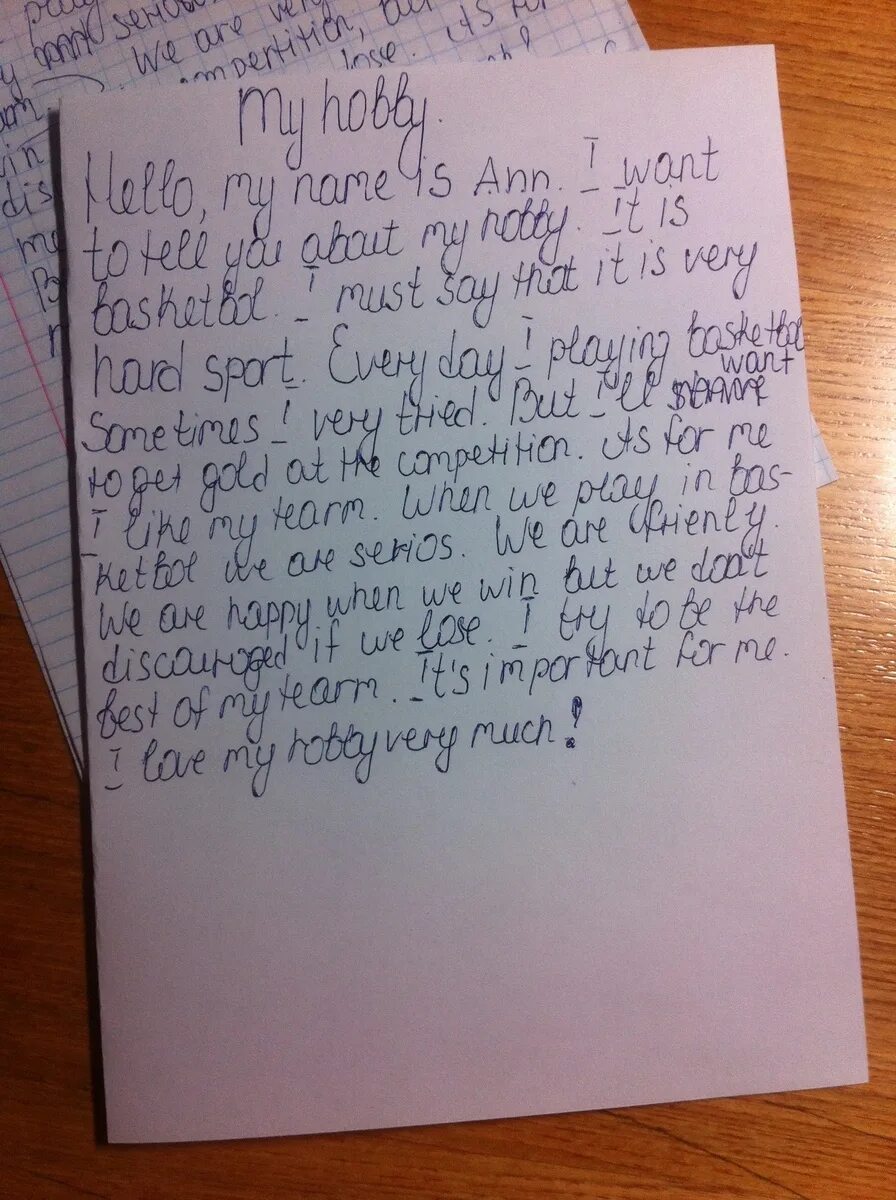 play serios
my We are very
competition, but
lose. its for
in
dis
me
B
My hobby.
Hello, my name is Ann. I want
to tell you about my hobby. It is
basketbol. I must say that it is very
hard sport. Every day I playing basketbol
Sometimes I very tried. But I'll want
to get gold at the competition. its for me
I like my tearm. When we play in bas-
ketbol we are serios. We are frienly.
We are happy when we win but we don't
discouroged if we lose. I try to be the
best of my tearm. It's important for me.
I love my hobby very much!